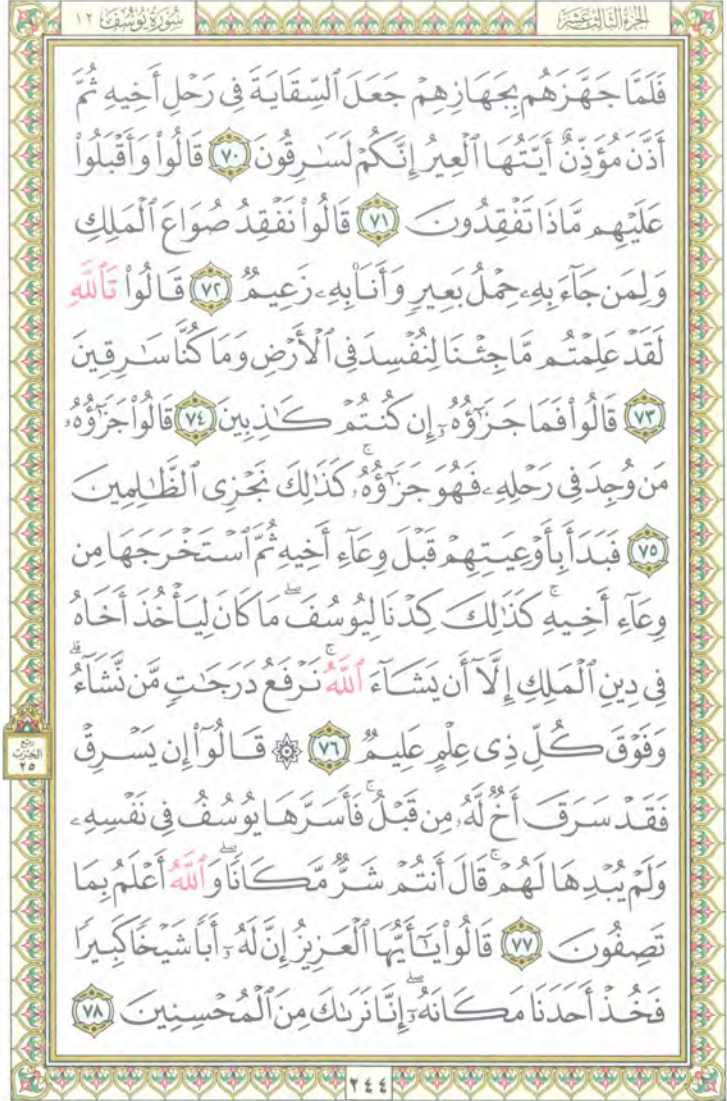 سُورَةُ يُوسُفَ ١٢
الجُزْءُ الثَّالِثَ عَشَرَ
فَلَمَّا جَهَّزَهُم بِجَهَازِهِمْ جَعَلَ ٱلسِّقَايَةَ فِى رَحْلِ أَخِيهِ ثُمَّ
أَذَّنَ مُؤَذِّنٌ أَيَّتُهَا ٱلْعِيرُ إِنَّكُمْ لَسَٰرِقُونَ ٧٠ قَالُوا۟ وَأَقْبَلُوا۟
عَلَيْهِم مَّاذَا تَفْقِدُونَ ٧١ قَالُوا۟ نَفْقِدُ صُوَاعَ ٱلْمَلِكِ
وَلِمَن جَآءَ بِهِۦ حِمْلُ بَعِيرٍ وَأَنَا۠ بِهِۦ زَعِيمٌ ٧٢ قَالُوا۟ تَٱللَّهِ
لَقَدْ عَلِمْتُم مَّا جِئْنَا لِنُفْسِدَ فِى ٱلْأَرْضِ وَمَا كُنَّا سَٰرِقِينَ
٧٣ قَالُوا۟ فَمَا جَزَٰٓؤُهُۥٓ إِن كُنتُمْ كَٰذِبِينَ ٧٤ قَالُوا۟ جَزَٰٓؤُهُۥ
مَن وُجِدَ فِى رَحْلِهِۦ فَهُوَ جَزَٰٓؤُهُۥ ۚ كَذَٰلِكَ نَجْزِى ٱلظَّٰلِمِينَ
٧٥ فَبَدَأَ بِأَوْعِيَتِهِمْ قَبْلَ وِعَآءِ أَخِيهِ ثُمَّ ٱسْتَخْرَجَهَا مِن
وِعَآءِ أَخِيهِ ۚ كَذَٰلِكَ كِدْنَا لِيُوسُفَ ۖ مَا كَانَ لِيَأْخُذَ أَخَاهُ
فِى دِينِ ٱلْمَلِكِ إِلَّآ أَن يَشَآءَ ٱللَّهُ ۚ نَرْفَعُ دَرَجَٰتٍ مَّن نَّشَآءُ ۗ
وَفَوْقَ كُلِّ ذِى عِلْمٍ عَلِيمٌ ٧٦ ۞ قَالُوٓا۟ إِن يَسْرِقْ
رُبع الحِزْب ٢٥
فَقَدْ سَرَقَ أَخٌ لَّهُۥ مِن قَبْلُ ۚ فَأَسَرَّهَا يُوسُفُ فِى نَفْسِهِۦ
وَلَمْ يُبْدِهَا لَهُمْ ۚ قَالَ أَنتُمْ شَرٌّ مَّكَانًا ۖ وَٱللَّهُ أَعْلَمُ بِمَا
تَصِفُونَ ٧٧ قَالُوا۟ يَٰٓأَيُّهَا ٱلْعَزِيزُ إِنَّ لَهُۥٓ أَبًا شَيْخًا كَبِيرًا
فَخُذْ أَحَدَنَا مَكَانَهُۥٓ ۖ إِنَّا نَرَىٰكَ مِنَ ٱلْمُحْسِنِينَ ٧٨
٢٤٤